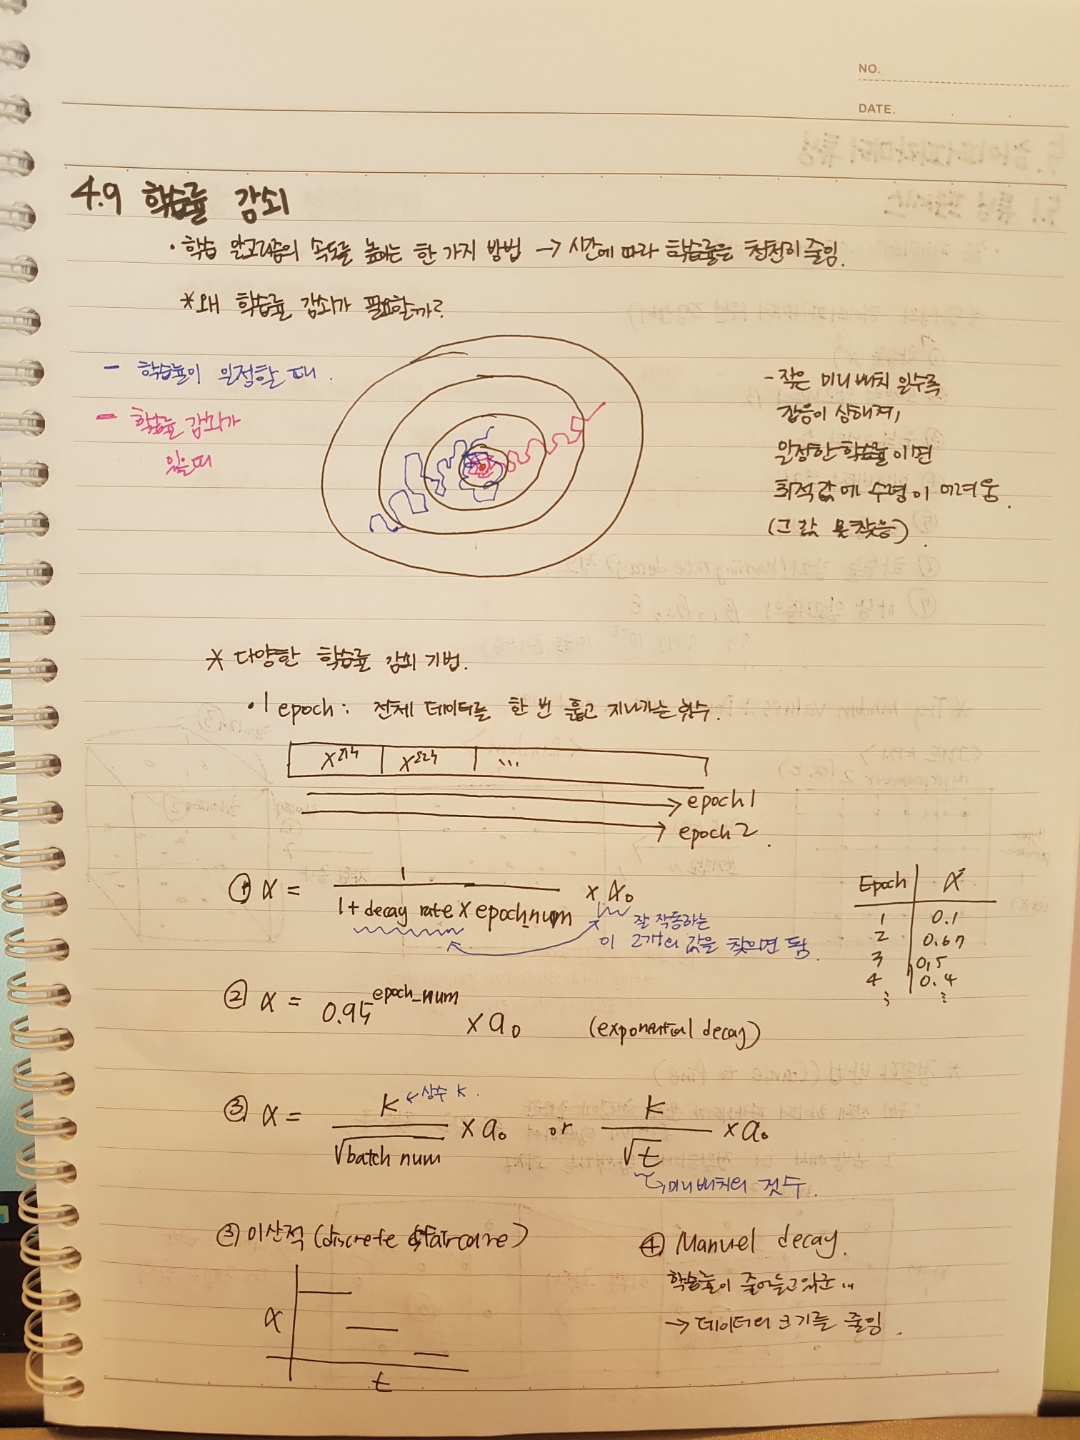 NO.
DATE.
4.9 학습률 감쇠
· 학습 알고리즘의 속도를 높이는 한 가지 방법 → 시간에 따라 학습률을 천천히 줄임.
* 왜 학습률 감쇠가 필요할까?
- 학습률이 일정할 때.
- 학습률 감쇠가
있을 때
- 작은 미니배치 일수록
잡음이 심해져,
일정한 학습률이면
최적값에 수렴이 어려움.
(그 값 못찾음).
* 다양한 학습률 감쇠 기법.
· 1 epoch : 전체 데이터를 한 번 훑고 지나가는 횟수.
X{1} X{2} ...
epoch1
epoch2
① α = 1 / (1 + decay rate × epoch_num) × α₀
잘 작동하는
이 2개의 값을 찾으면 됨.
Epoch α
1 0.1
2 0.67
3 0.5
4 0.4
⋮ ⋮
② α = 0.95^epoch_num × α₀ (exponential decay)
③ α = k / √batch num × α₀ or k / √t × α₀
상수 k.
미니배치의 갯수.
③ 이산적 (discrete staircare)
α
t
④ Manuel decay.
학습률이 줄어들고 있군 ...
→ 데이터의 크기를 줄임.